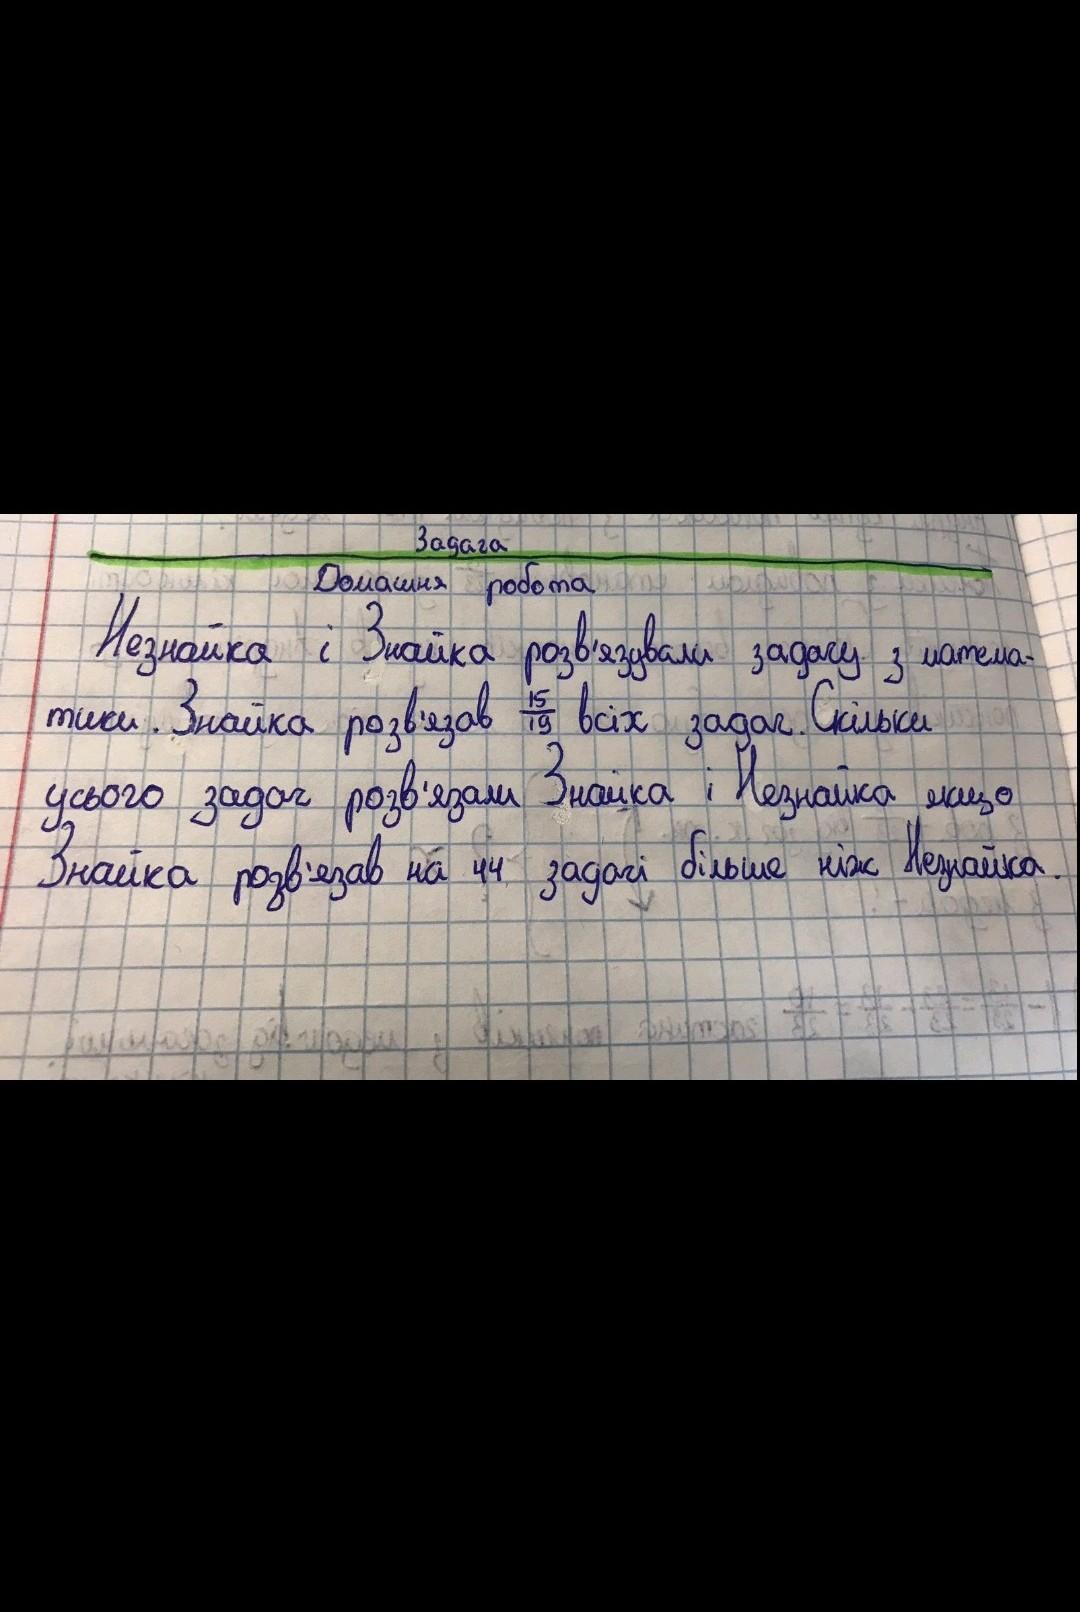 Задача
Домашня робота
Незнайка і Знайка розв'язували задачу з матема-
тики. Знайка розв'язав 15/19 всіх задач. Скільки
усього задач розв'язали Знайка і Незнайка якщо
Знайка розв'язав на 44 задачі більше ніж Незнайка.